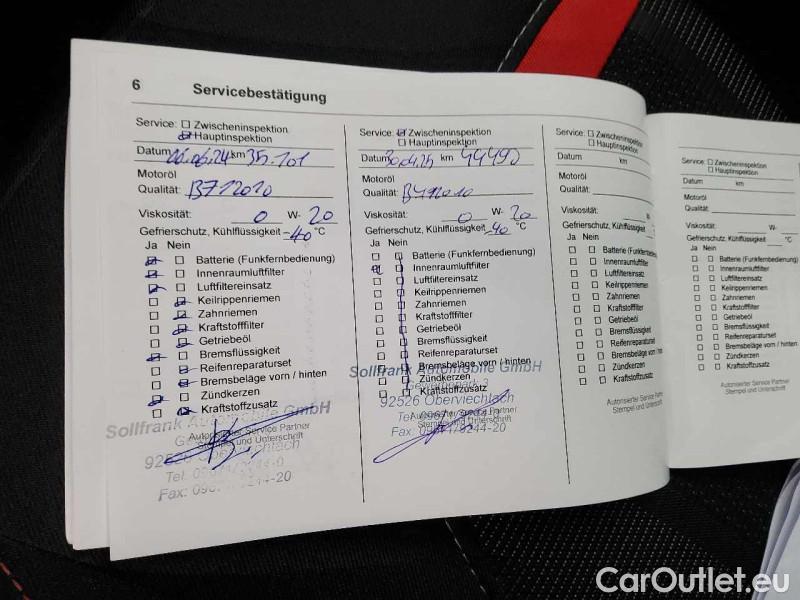 6 Servicebestätigung
Service: Zwischeninspektion
Hauptinspektion
Datum 06.06.24 km 35.101
Motoröl
Qualität: B712010
Viskosität: 0 W- 20
Gefrierschutz, Kühlflüssigkeit -40 °C
Ja Nein
Batterie (Funkfernbedienung)
Innenraumluftfilter
Luftfiltereinsatz
Keilrippenriemen
Zahnriemen
Kraftstofffilter
Getriebeöl
Bremsflüssigkeit
Reifenreparaturset
Bremsbeläge vorn / hinten
Zündkerzen
Kraftstoffzusatz
Sollfrank Automobile GmbH
Autorisierter Service Partner
Stempel und Unterschrift
92526 Oberviechtach
Tel: 09671/9244-0
Fax: 09671/9244-20
Service: Zwischeninspektion
Hauptinspektion
Datum 30.04.25 km 44490
Motoröl
Qualität: B712010
Viskosität: 0 W- 20
Gefrierschutz, Kühlflüssigkeit -40 °C
Ja Nein
Batterie (Funkfernbedienung)
Innenraumluftfilter
Luftfiltereinsatz
Keilrippenriemen
Zahnriemen
Kraftstofffilter
Getriebeöl
Bremsflüssigkeit
Reifenreparaturset
Bremsbeläge vorn / hinten
Zündkerzen
Kraftstoffzusatz
Sollfrank Automobile GmbH
92526 Oberviechtach
Autorisierter Service Partner
Stempel und Unterschrift
Tel: 09671/9244-0
Fax: 09671/9244-20
Service: Zwischeninspektion
Hauptinspektion
Datum km
Motoröl
Qualität:
Viskosität: W-
Gefrierschutz, Kühlflüssigkeit
Ja Nein
Batterie (Funkfernbedienung)
Innenraumluftfilter
Luftfiltereinsatz
Keilrippenriemen
Zahnriemen
Kraftstofffilter
Getriebeöl
Bremsflüssigkeit
Reifenreparaturset
Bremsbeläge vorn / hinten
Zündkerzen
Kraftstoffzusatz
Autorisierter Service Partner
Stempel und Unterschrift
Service: Zwischeninspektion
Hauptinspektion
Datum km
Motoröl
Qualität:
Viskosität: W-
Gefrierschutz, Kühlflüssigkeit °C
Ja Nein
Batterie (Funkfernbedienung)
Innenraumluftfilter
Luftfiltereinsatz
Keilrippenriemen
Zahnriemen
Kraftstofffilter
Getriebeöl
Bremsflüssigkeit
Reifenreparaturset
Bremsbeläge vorn / hinten
Zündkerzen
Kraftstoffzusatz
Autorisierter Service Partner
Stempel und Unterschrift
CarOutlet.eu